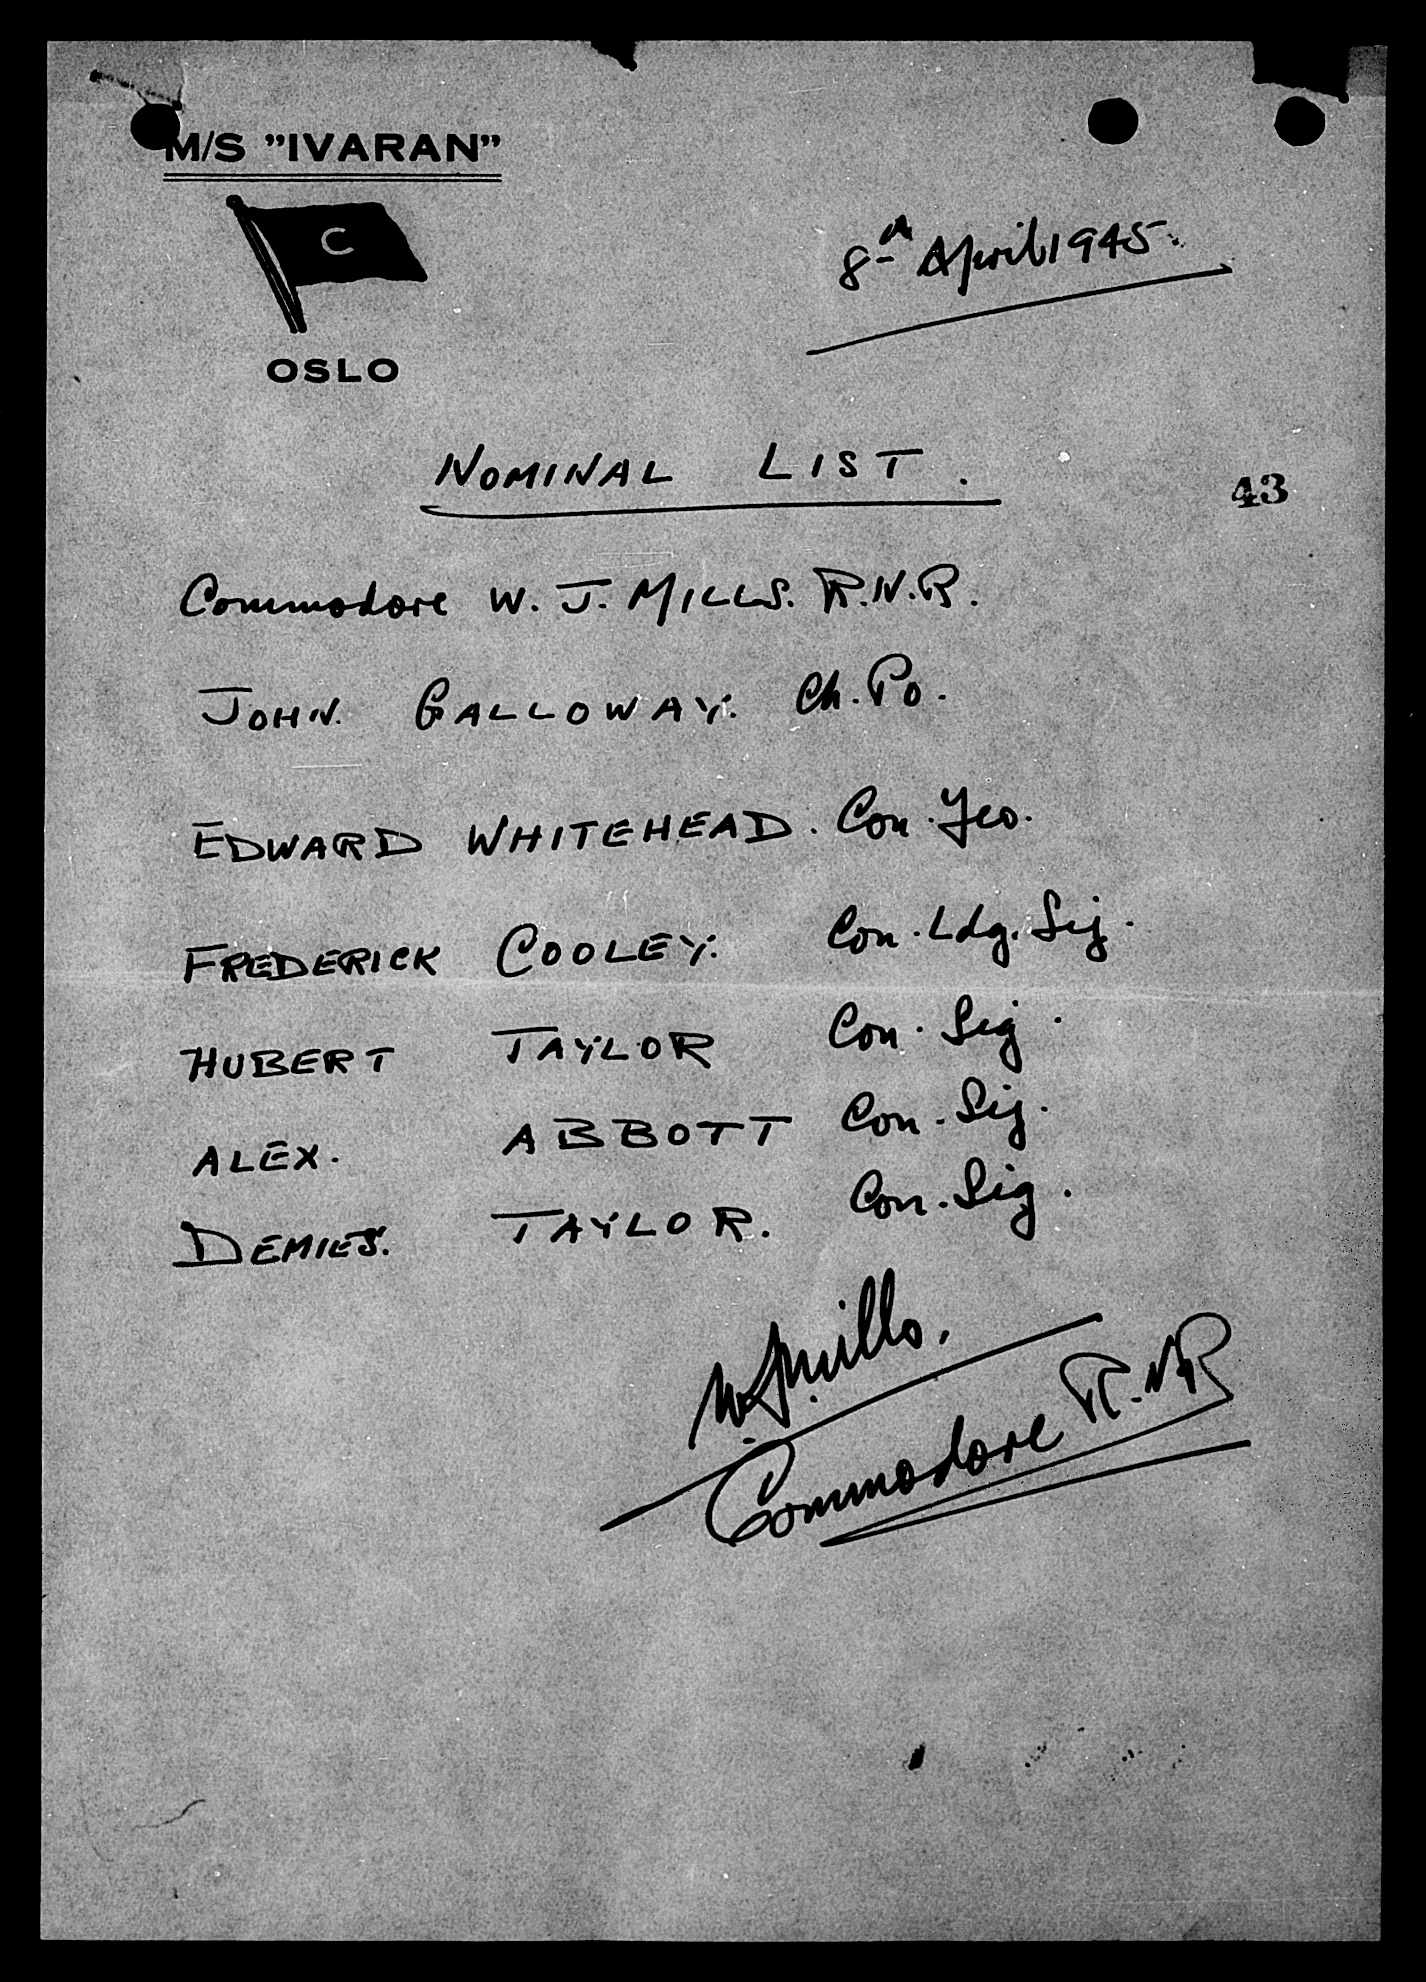 M/S "IVARAN"
C
OSLO
8th April 1945.
NOMINAL LIST.
43
Commodore W. J. MILLS. R.N.R.
JOHN. GALLOWAY. Ch. Po.
EDWARD WHITEHEAD. Con. Yeo.
FREDERICK COOLEY. Con. Ldg. Sig.
HUBERT TAYLOR Con. Sig.
ALEX. ABBOTT Con. Sig.
TAYLOR. Con. Sig.
W. J. Mills.
Commodore R.N.R